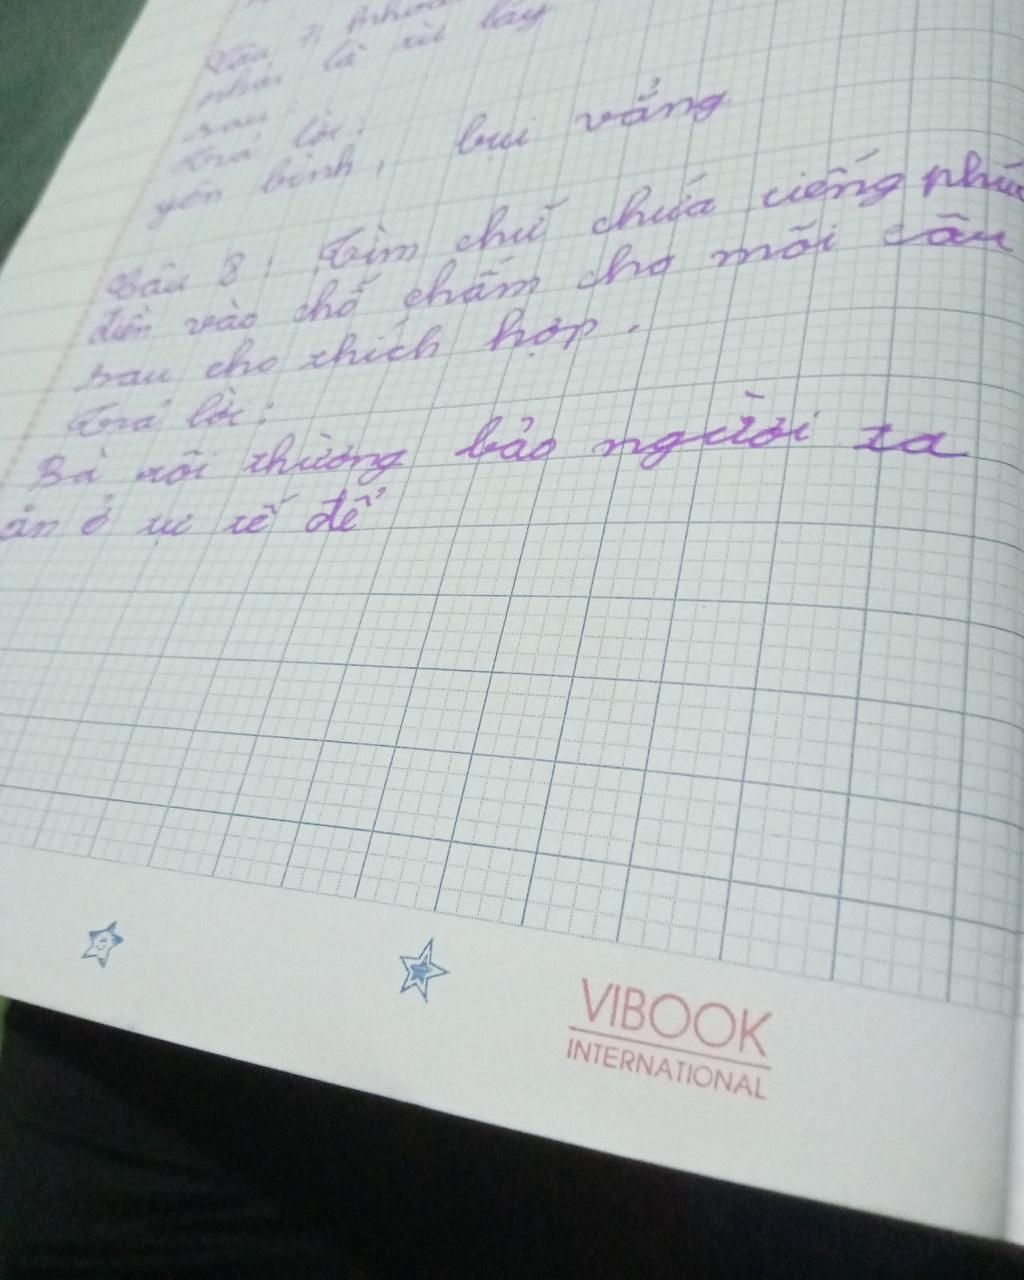 Câu 7:
phải là từ láy
sau:
Trả lời:
yên bình, vui vắng
Câu 8: Tìm chữ chứa tiếng phúc
điền vào chỗ chấm cho mỗi câu
sau cho thích hợp.
Trả lời:
Bà tôi thường bảo người ta
ăn ở tử tế để
VIBOOK
INTERNATIONAL